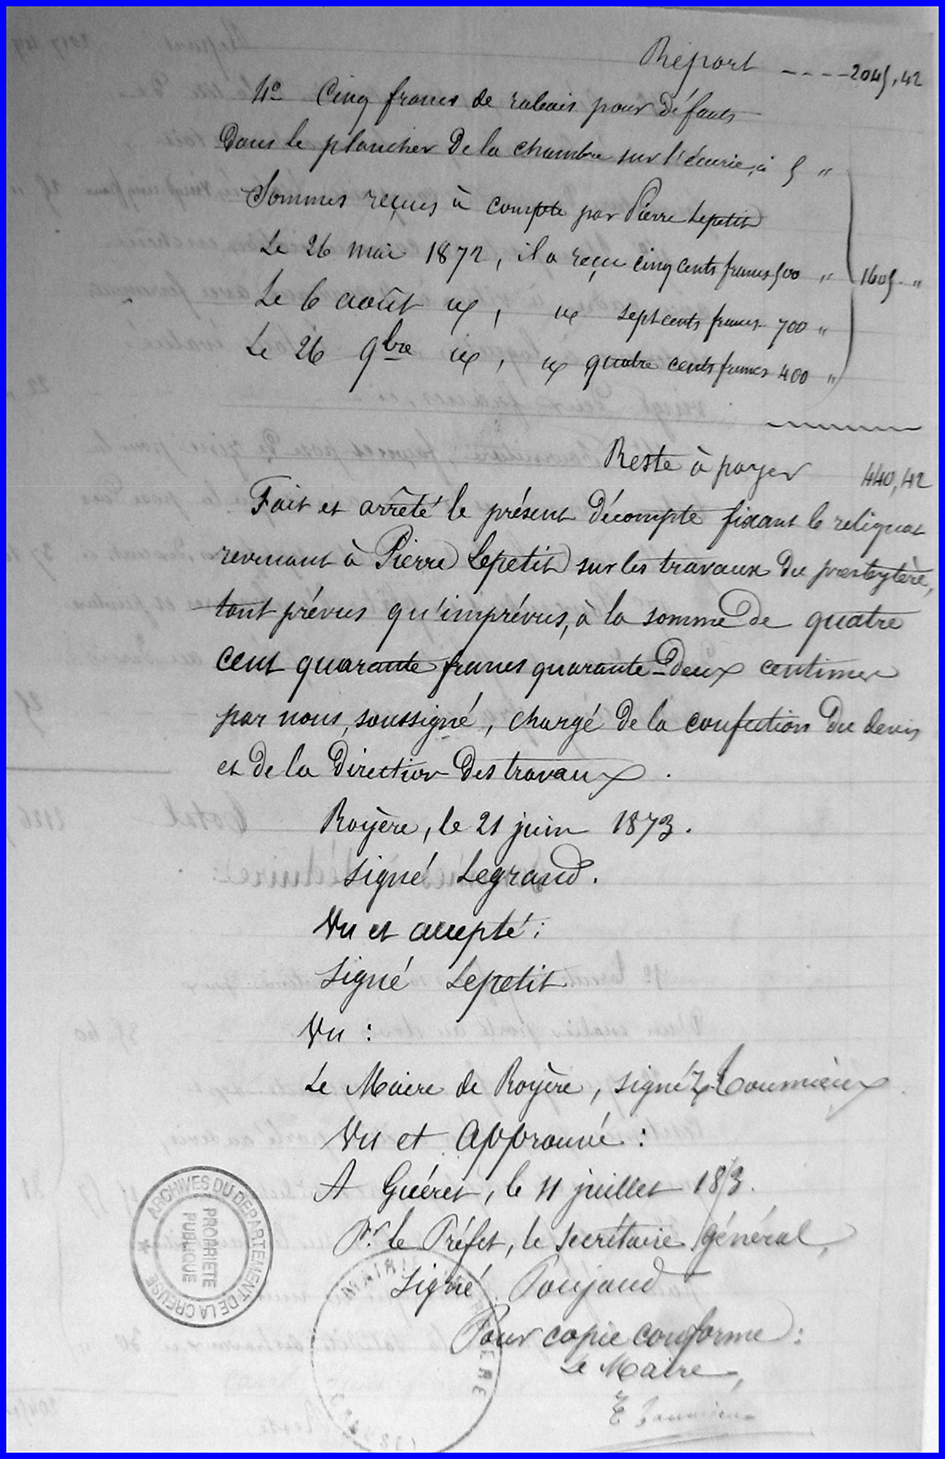 Report ---- 2045,42
4º Cinq francs de rabais pour défauts
Dans le plancher de la chambre sur l'écurie, ci 5 "
Sommes reçues à compte par Pierre Lepetit
Le 26 mai 1872, il a reçu cinq cents francs 500 " 1605 "
Le 6 août id, id sept cents francs 700 "
Le 26 9bre id, id quatre cents francs 400 "
Reste à payer 440,42
Fait et arrêté le présent décompte fixant le reliquat
revenant à Pierre Lepetit sur les travaux du presbytère,
tant prévus qu'imprévus, à la somme de quatre
cent quarante francs quarante-deux centimes
par nous, soussigné, chargé de la confection du devis
et de la direction des travaux.
Royère, le 21 juin 1873.
Signé Legrand.
Vu et accepté:
Signé Lepetit
Vu:
Le Maire de Royère, signé Toumieux
Vu et Approuvé:
A Guéret, le 11 juillet 1873.
Pr le Préfet, le secrétaire général,
Signé Poujaud
Pour copie conforme:
Le Maire,
E Toumieux
ARCHIVES DU DEPARTEMENT DE LA CREUSE
PROPRIETE
PUBLIQUE
MAIRIE DE ROYERE